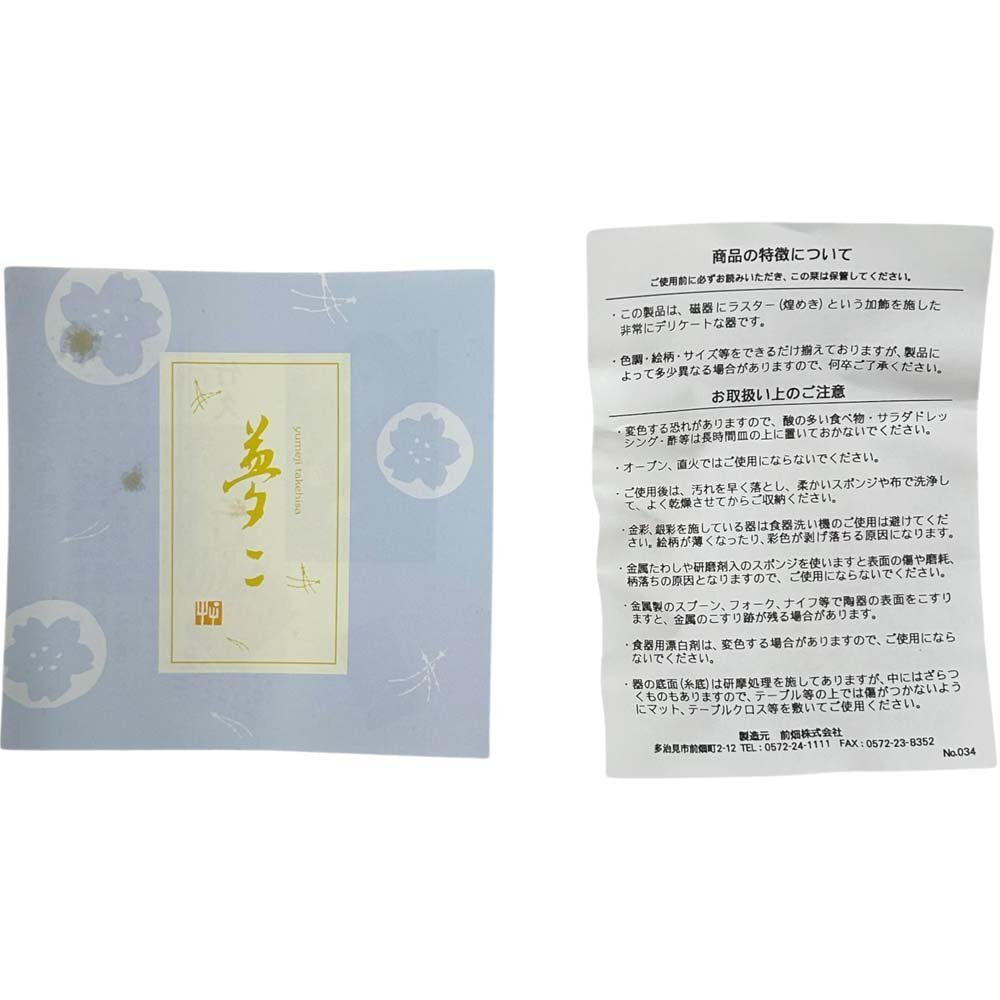 夢二
yumeji takehisa
商品の特徴について
ご使用前に必ずお読みいただき、この栞は保管してください。
・この製品は、磁器にラスター(煌めき)という加飾を施した
非常にデリケートな器です。
・色調・絵柄・サイズ等をできるだけ揃えておりますが、製品に
よって多少異なる場合がありますので、何卒ご了承ください。
お取扱い上のご注意
・変色する恐れがありますので、酸の多い食べ物・サラダドレッ
シング・酢等は長時間皿の上に置いておかないでください。
・オーブン、直火ではご使用にならないでください。
・ご使用後は、汚れを早く落とし、柔かいスポンジや布で洗浄し
て、よく乾燥させてからご収納ください。
・金彩、銀彩を施している器は食器洗い機のご使用は避けてくだ
さい。絵柄が薄くなったり、彩色が剥げ落ちる原因になります。
・金属たわしや研磨剤入のスポンジを使いますと表面の傷や磨耗、
柄落ちの原因となりますので、ご使用にならないでください。
・金属製のスプーン、フォーク、ナイフ等で陶器の表面をこすり
ますと、金属のこすり跡が残る場合があります。
・食器用漂白剤は、変色する場合がありますので、ご使用になら
ないでください。
・器の底面(糸底)は研摩処理を施してありますが、中にはざらつ
くものもありますので、テーブル等の上では傷がつかないよう
にマット、テーブルクロス等を敷いてご使用ください。
製造元 前畑株式会社
多治見市前畑町2-12 TEL:0572-24-1111 FAX:0572-23-8352
No.034